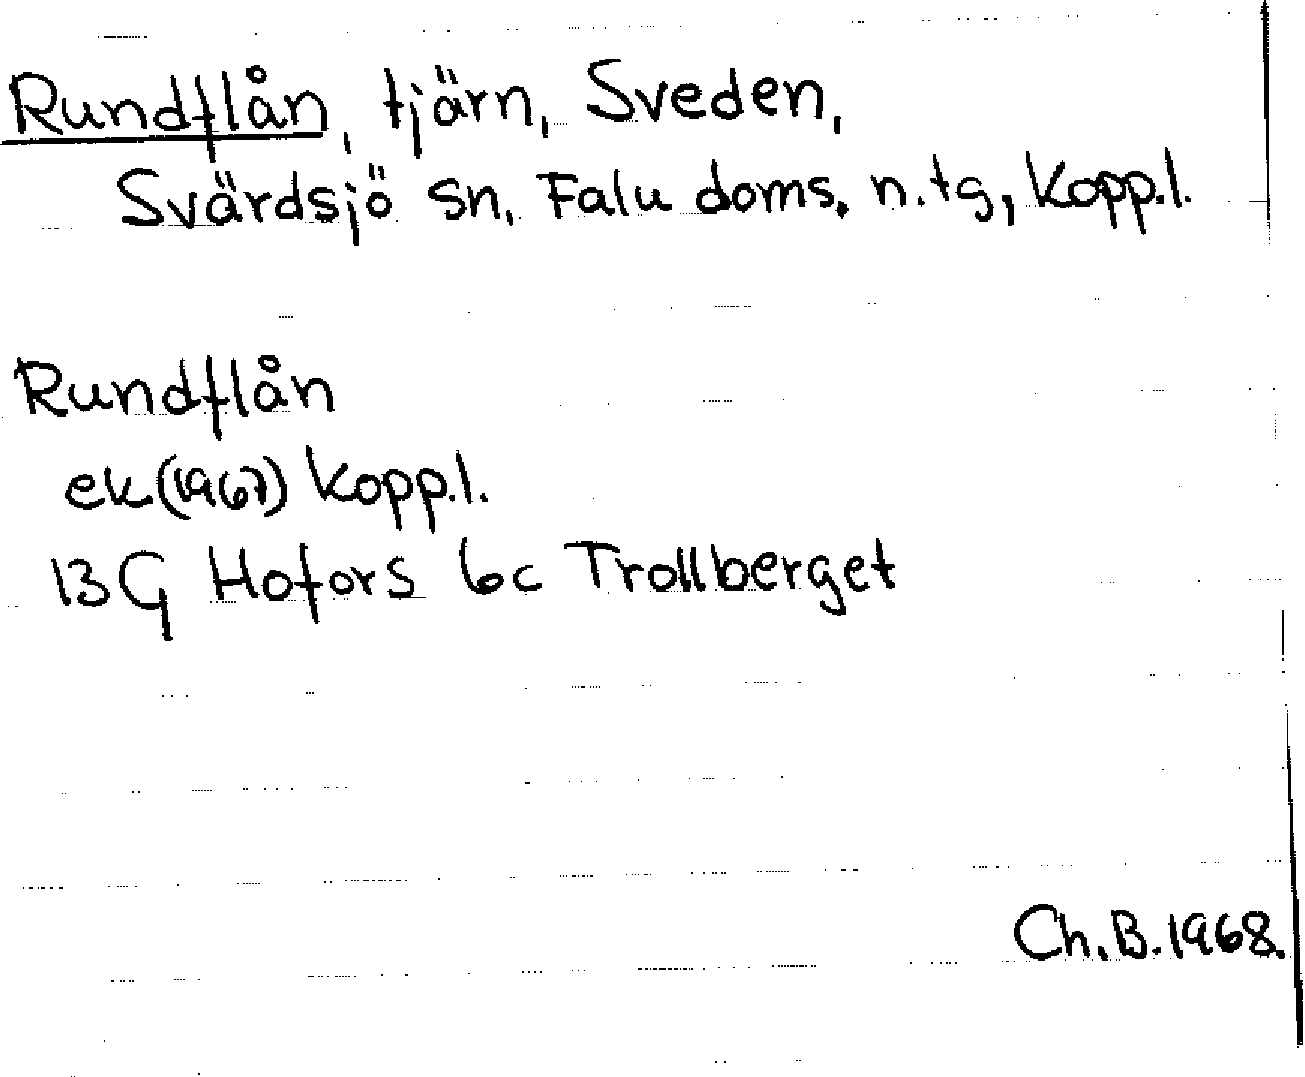 Rundflån, tjärn, Sveden,
Svärdsjö sn, Falu doms. n. tg, Kopp.l.
Rundflån
ek (1967) Kopp.l.
13G Hofors 6c Trollberget
Ch. B. 1968.